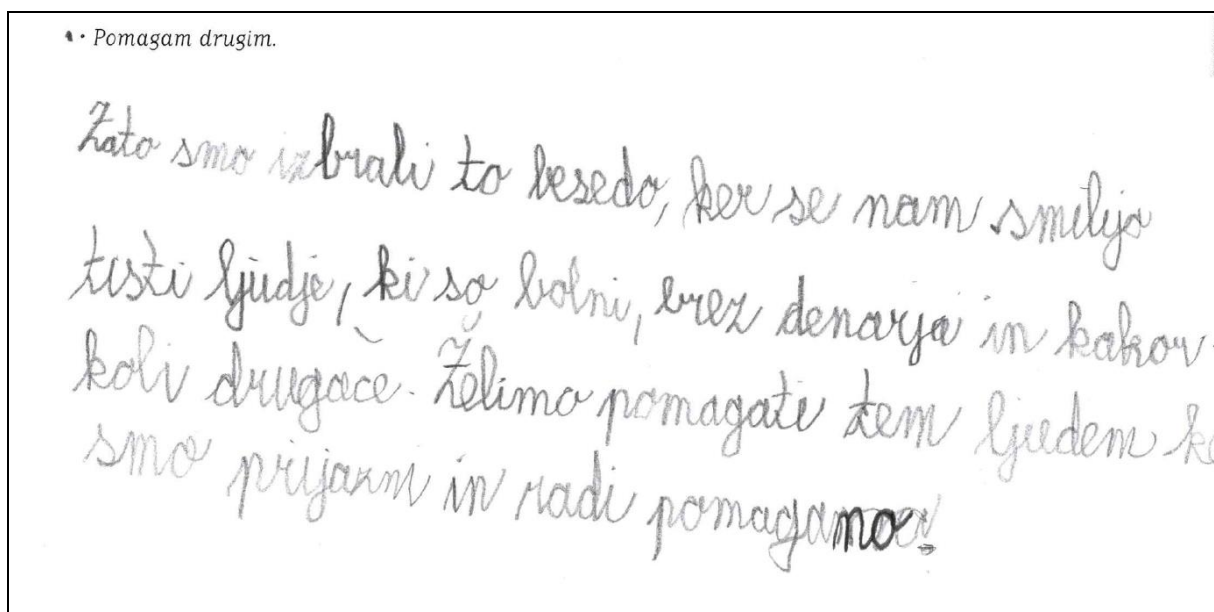 • Pomagam drugim.
Zato smo izbrali to besedo, ker se nam smilijo
tisti ljudje, ki so bolni, brez denarja in kakor-
koli drugače. Želimo pomagati tem ljudem ke
smo prijazni in radi pomagamo.